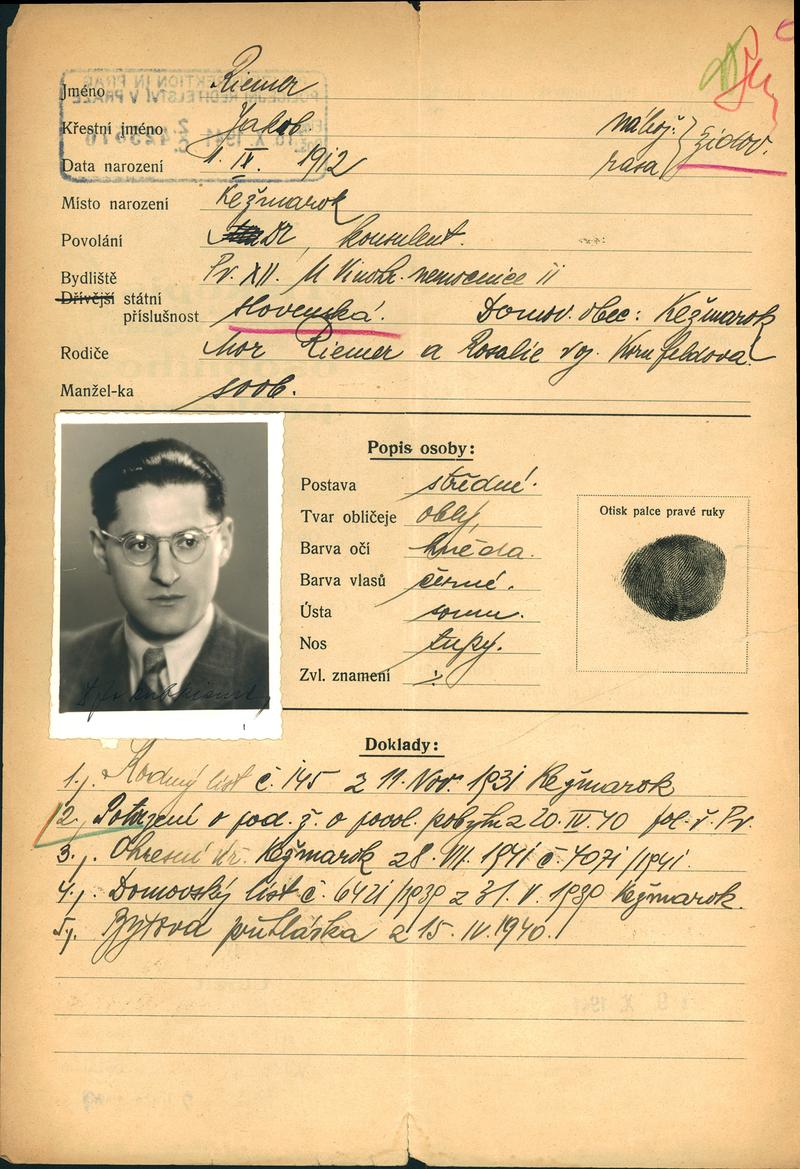 Jméno Riemer
Křestní jméno Jakob. nábož. } židov.
Data narození 1. IX. 1912 rasa
Místo narození Kežmarok
Povolání Dr, konsulent.
Bydliště Pr. XII. U Vinohr. nemocnice 11
Dřívější státní
příslušnost slovenská. Domov. obec: Kežmarok
Rodiče Mor Riemer a Rosalie roz. Kornfeldová.
Manžel-ka svob.
Popis osoby:
Postava střední.
Tvar obličeje oblý,
Barva očí hnědá.
Barva vlasů černé.
Ústa soum.
Nos tupý.
Zvl. znamení
Otisk palce pravé ruky
Doklady:
1.). Rodný list č. 145 z 11. Nov. 1931 Kežmarok
2.) Potvrzení o pod. ž. o povol. pobytu z 20. IV. 40 pol. ř. Pr.
3.). Okresní úř. Kežmarok 28. VII. 1941 č. 4071/1941.
4.). Domovský list č. 6421/1939 z 31. V. 1939 Kežmarok.
5.). Bytová přihláška z 15. IV. 1940.